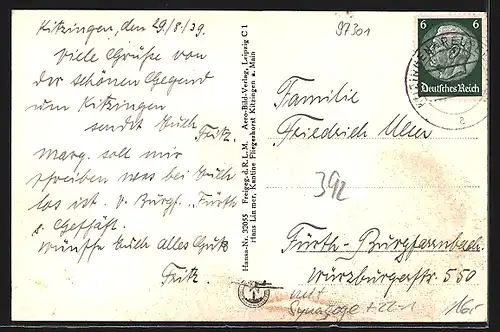 Kitzingen, den 29/8/39.
Viele Grüße von
der schönen Gegend
um Kitzingen
sendet Euch
Fritz.
Marg. soll mir
schreiben was bei Euch
los ist. v. Burgf. Fürth
s. Geschäft.
Wünsche Euch alles Gute
Fritz.
Hansa-Nr. 33055 Freigeg. d. R.L.M. Aero-Bild-Verlag, Leipzig C 1
Hans Linner, Kantine Fliegerhorst Kitzingen a. Main
97301
6 6
Deutsches Reich
a
Familie
Friedrich
392
Fürth-Burgfarrnbach
Würzburgerstr. 550
mit
Synagoge